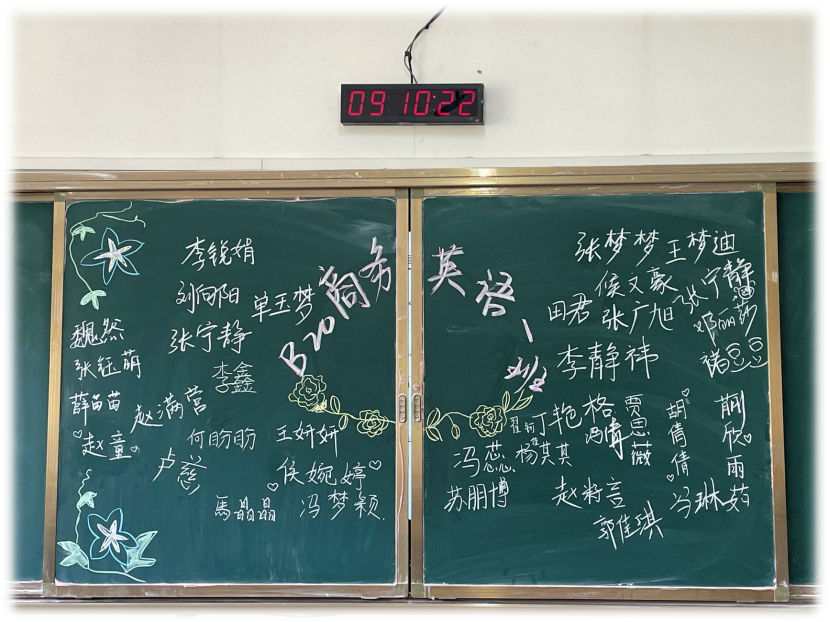 09:10:22
B20商务英语一班
李锐娟
刘向阳
单玉梦
张宁静
魏然
张钰萌
李鑫
薛苗苗
赵满营
赵童
何盼盼
王妍妍
卢慈
侯婉婷
馬晶晶
冯梦颖
张梦梦
王梦迪
侯文豪
张宁静
田君
张广旭
邓丽莎
李静祎
丁艳格
贾思薇
胡倩倩
荆欣雨
冯倩
冯蕊
杨其其
苏朋博
赵言
郭佳琪
冯琳茹